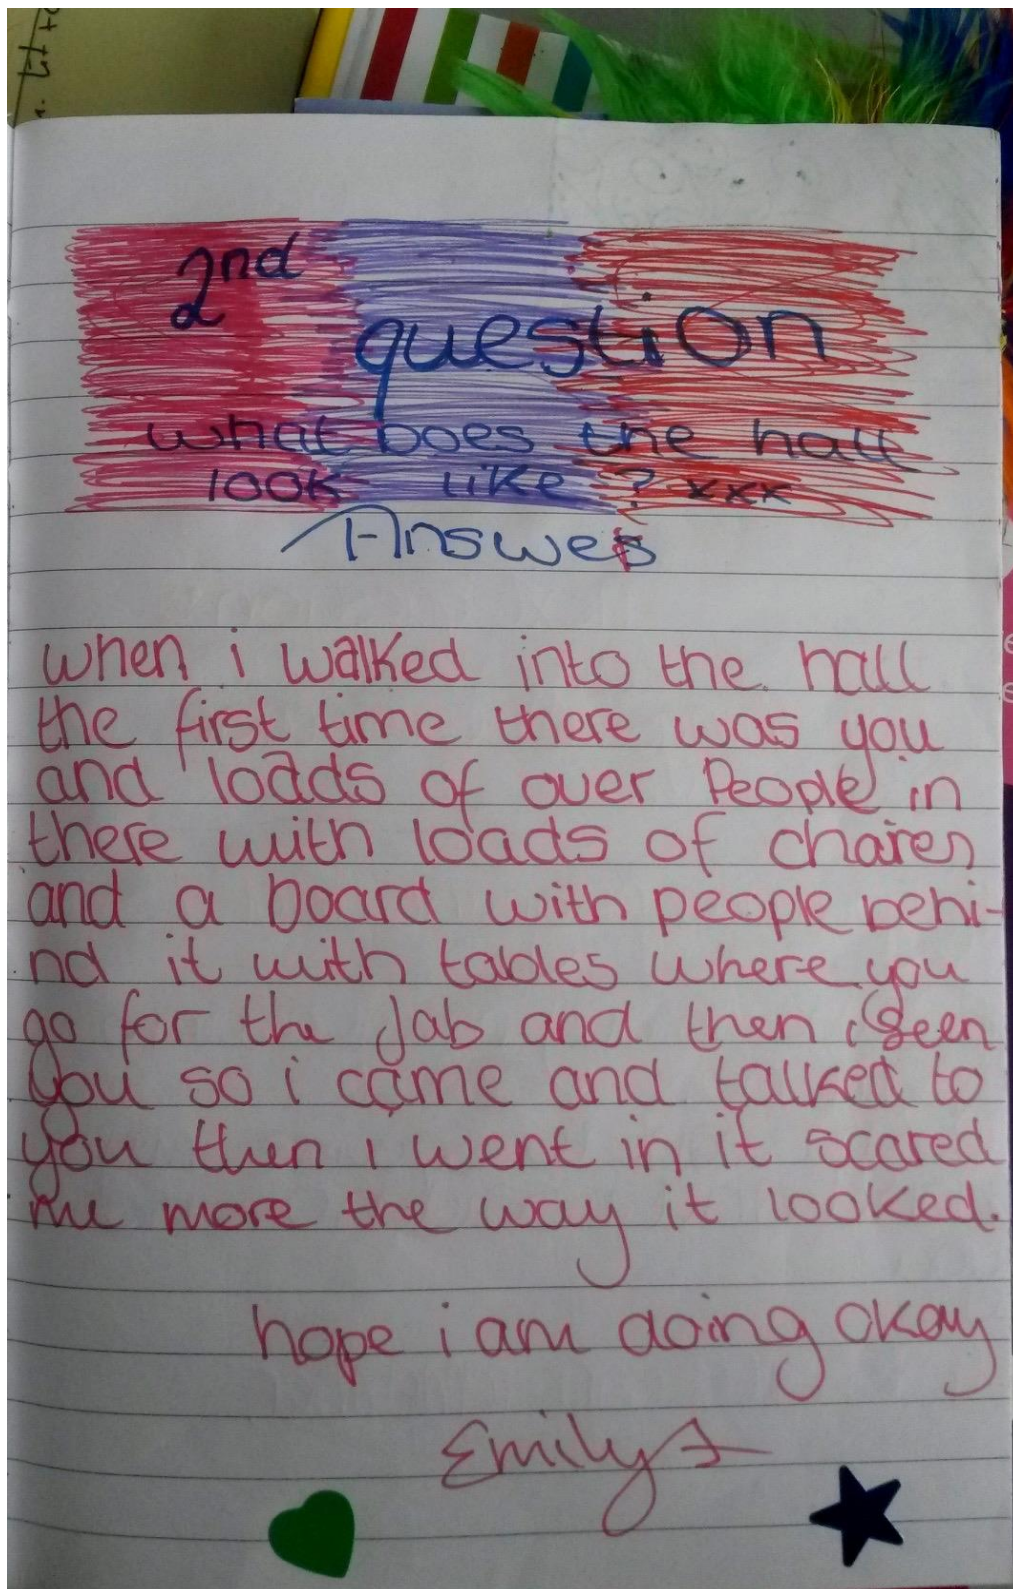 2nd
question
what does the hall
look like ? xxx
Answer
when i walked into the hall
the first time there was you
and loads of over People in
there with loads of chaires
and a board with people behi-
nd it with tables where you
go for the Jab and then i Seen
you so i came and talked to
you then i went in it scared
me more the way it looked.
hope i am doing okay
Emily